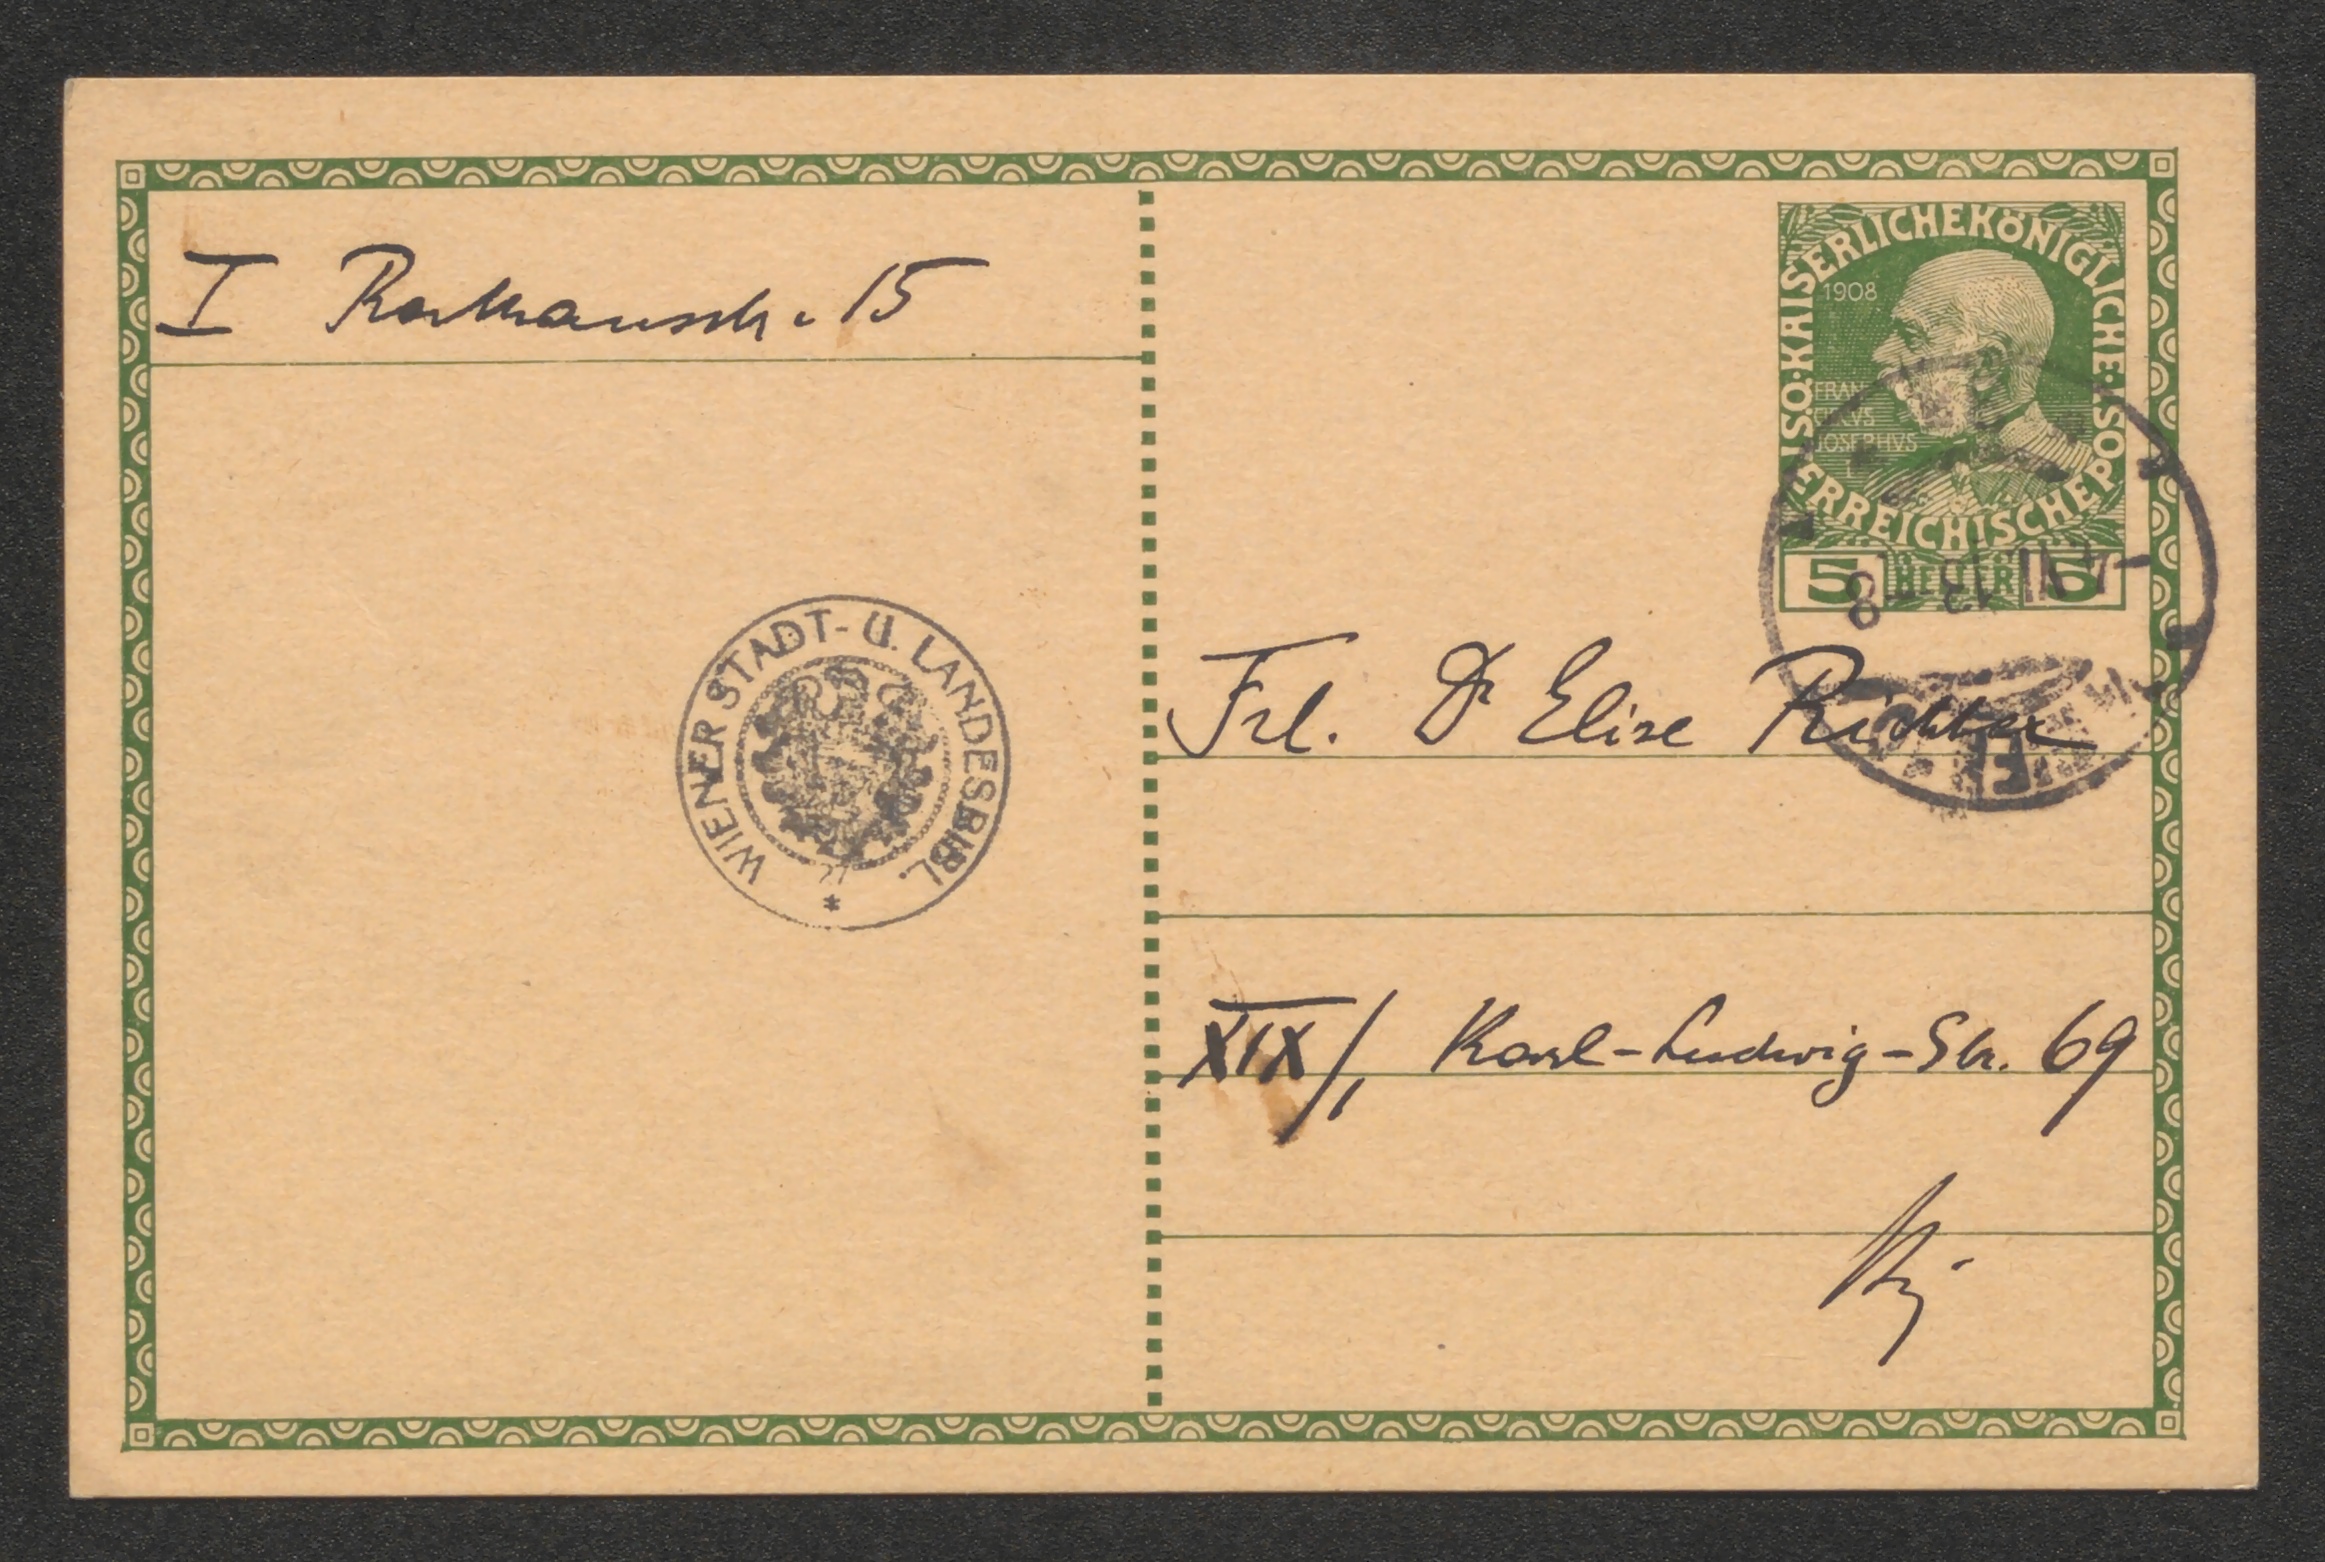 I Rathausstr. 15
WIENER STADT- U. LANDESBIBL.
KAISERLICHEKÖNIGLICHE
ÖSTERREICHISCHEPOST
1908
FRAN
CISCVS
JOSEPHVS
5 HELLER 5
Frl. Dr Elise Richter
XIX/1 Karl-Ludwig-Str. 69